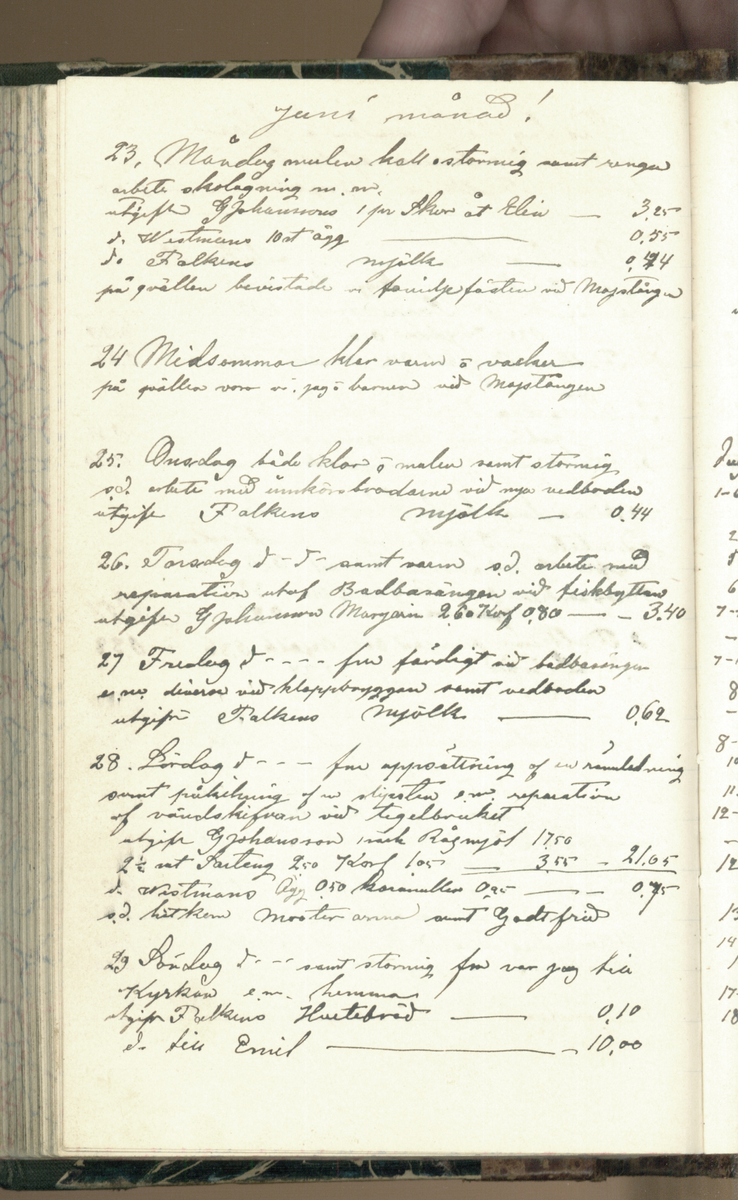 Juni månad!
23, Måndag mulen kall o stormig samt regn
arbete skolagning m.m.
utgift GJohanssons 1 par Skor åt Elin — 3,25
d. Westmans 10 st ägg — 0,55
do Falkens mjölk — 0,44
på qvällen bevistade vi familjefästen vid Majstången
24 Midsommar klar varm o vacker
på qvällen voro vi, jag o barnen vid Majstången
25. Onsdag både klar o mulen samt stormig
s.d. arbete med vid nya vedboden
utgift Falkens mjölk — 0,44
26. Torsdag d - d - samt varm s.d. arbete med
reparation utaf Badbasängen vid fiskhyttan
utgifter GJohansson Margarin 2,60 Korf 0,80 — 3.40
27 Fredag d - - - - fm färdigt vid badbasängen
e.m. diverse vid klappbryggan samt vedboden
utgift Falkens mjölk — 0,62
28. Lördag d - - - fm uppsättning af en
samt af en slipsten e.m. reparation
af vändskifvan vid tegelbruket
utgift GJohansson säck Rågmjöl 17,50
2½ 2,50 Korf 1,05 — 3,55 — 21.05
d. Westmans Ägg 0,50 Karameller 0,25 — 0,75
s.d. hitkom moster anna samt Godtfrid
29 Söndag d - - - samt stormig fm var jag till
Kyrkan e.m. hemma
utgift Falkens Hvetebröd — 0,10
d. till Emil — 10,00